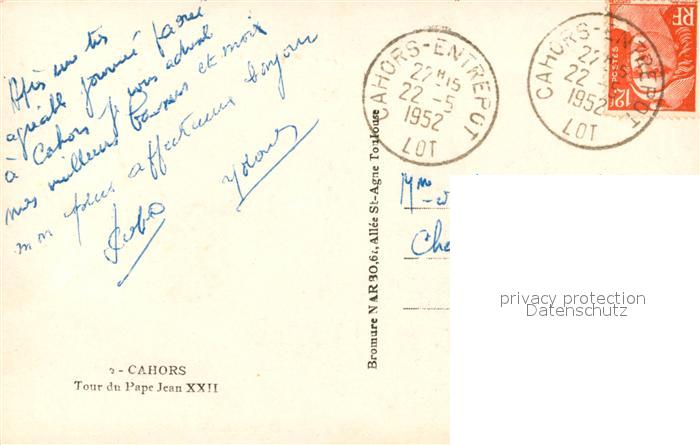 Après une très
agréable journée passée
à Cahors je vous adresse
mes meilleurs baisers et moi
mon plus affectueux bonjour
Yvonne
2 - CAHORS
Tour du Pape Jean XXII
Bromure NARBO, 61, Allée St-Agne Toulouse
CAHORS-ENTREPOT
22 H15
22 -5
1952
LOT
CAHORS-ENTREPOT
22
22 -5
1952
LOT
RF
POSTES
12F
Mme
Che
privacy protection
Datenschutz